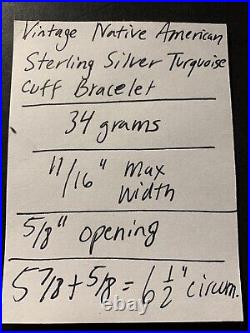 Vintage Native American
Sterling Silver Turquoise
Cuff Bracelet
34 grams
11/16" Max
Width
5/8" opening
5 7/8 + 5/8 = 6 1/2" circum.